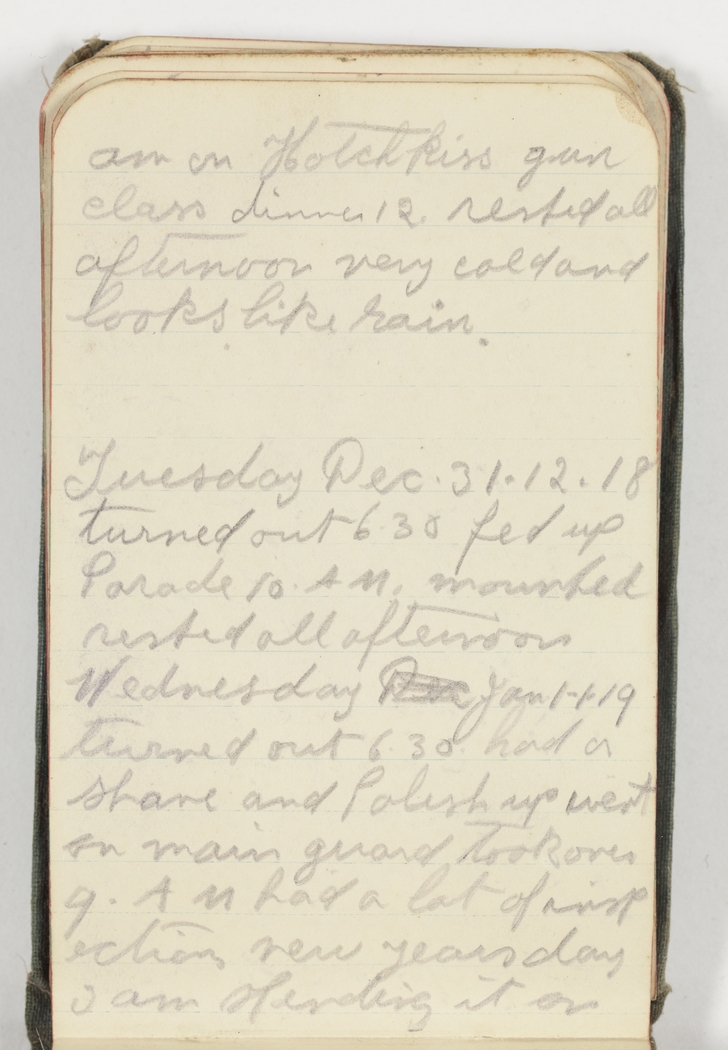 am on Hotchkiss gun
class dinner 12. rested all
afternoon very cold and
looks like rain.
Tuesday Dec. 31.12.18
turned out 6.30 fed up
Parade 10. A M. mounted
rested all afternoon
Wednesday Jan 1-1-19
turned out 6.30 had a
shave and Polish up went
on main guard took over
9. A M had a lot of insp
ection new years day
I am spending it on